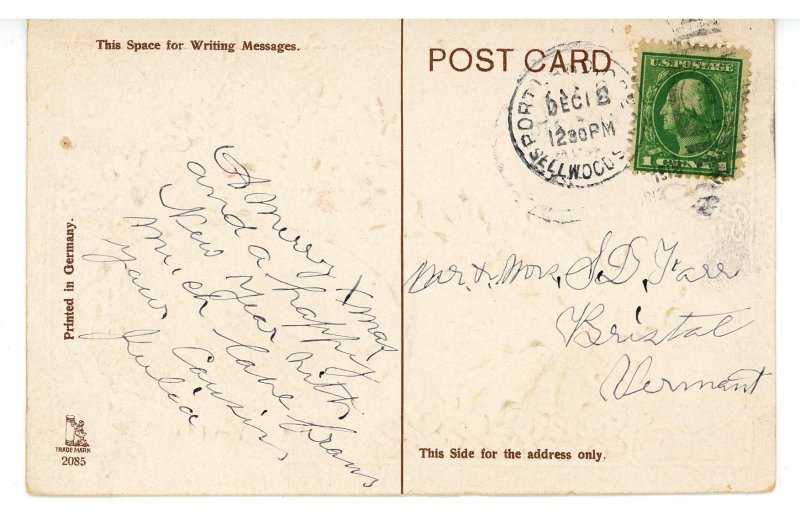 This Space for Writing Messages.
A Merry Xmas
and a happy
New Year with
much love from
your Cousin
Julia
Printed in Germany.
TRADE MARK
2085
POST CARD
DEC 18
1230PM
U.S. POSTAGE
1 CENT 1
Mr. & Mrs. S. D. Farr
Bristol
Vermont
This Side for the address only.